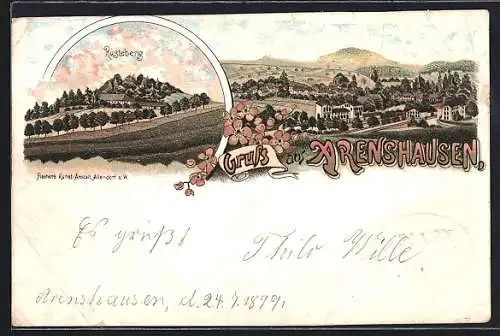 Rusteberg
Fischer's Kunst-Anstalt, Allendorf a. W.
Gruß aus ARENSHAUSEN,
Es grüßt
Thilo Wille
Arenshausen, d. 24.7.1899.